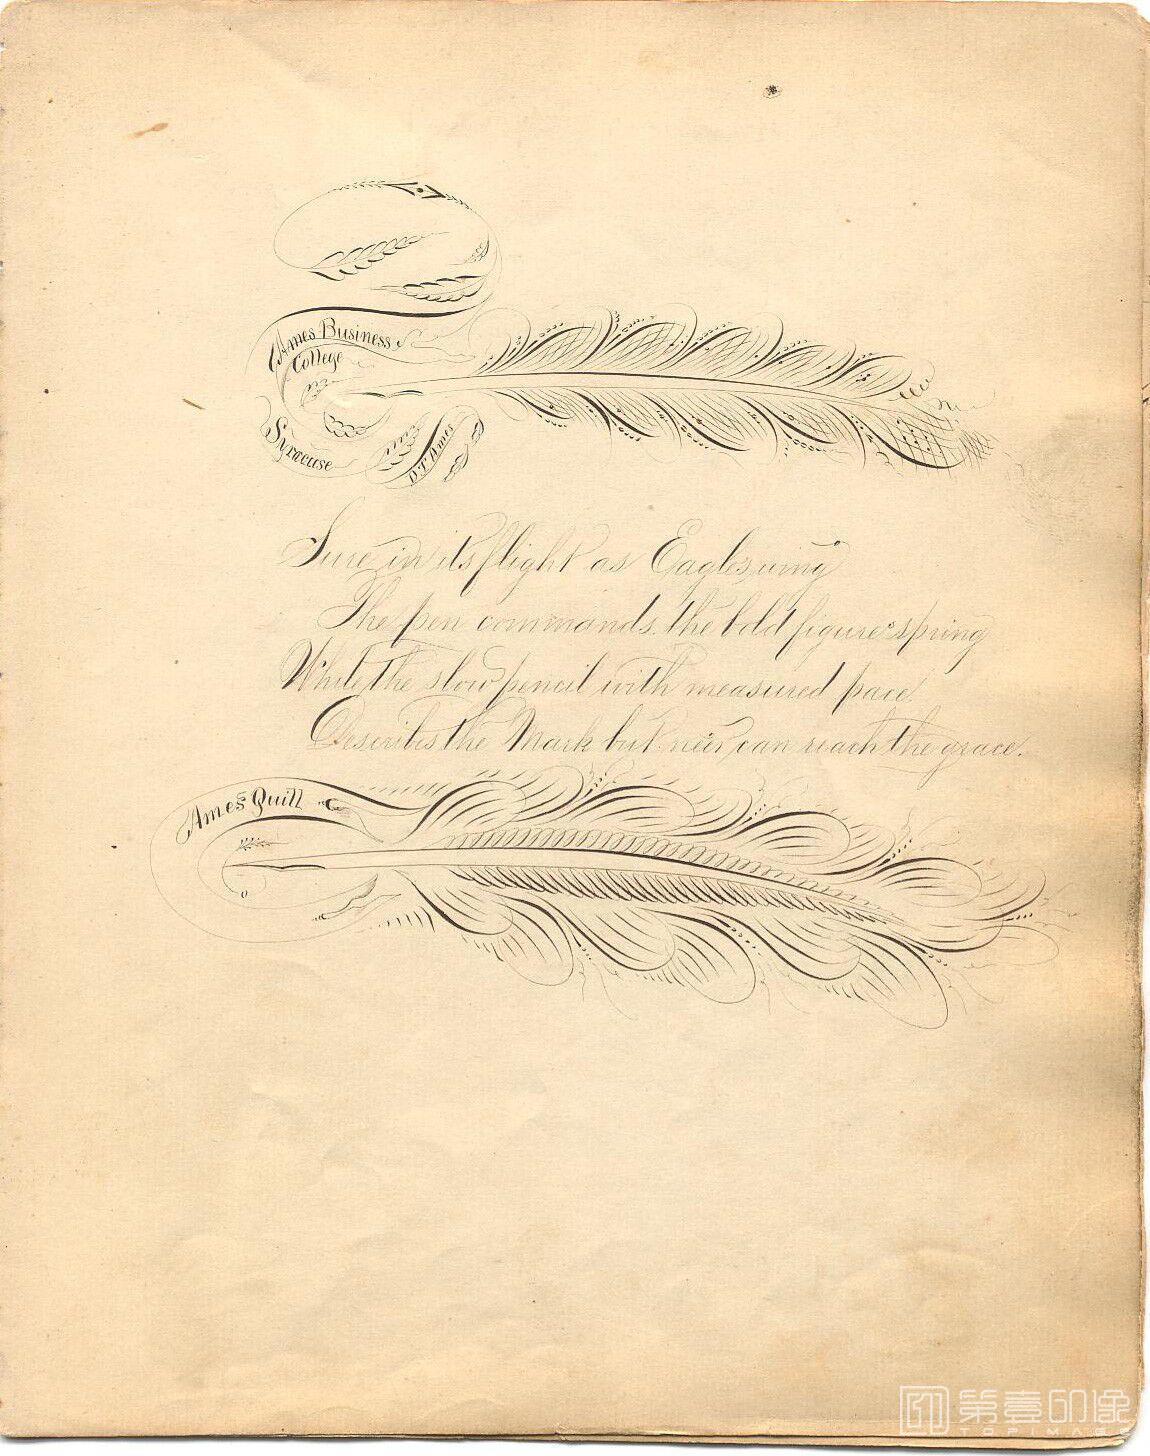 Ames Business
College
Syracuse
D.T. Ames
Sure in its flight as Eagles wing
The pen commands, the bold figures spring
While the slow pencil with measured pace
Describes the Mark but neir can reach the grace.
Ames Quill
第壹印像
TOPIMAGE